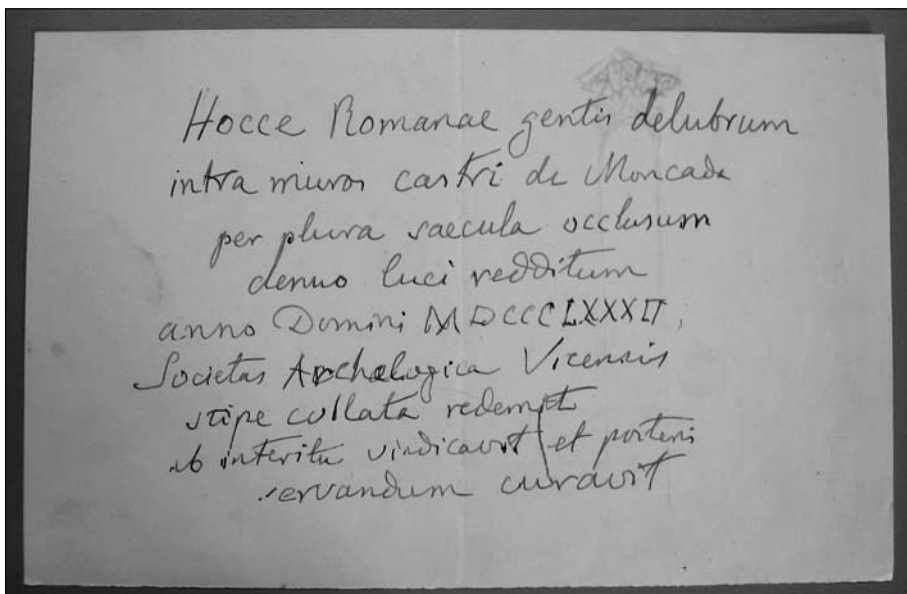 Hocce Romanae gentis delubrum
intra muros castri de Moncada
per plura saecula occlusum
denuo luci redditum
anno Domini MDCCCLXXXII,
Societas Archelogica Vicensis
stipe collata redempt
ab interitu vindicavit et posteris
servandum curavit